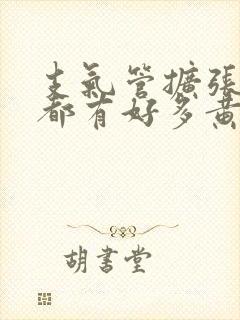 支氣管擴張
都有好多黃
胡書堂